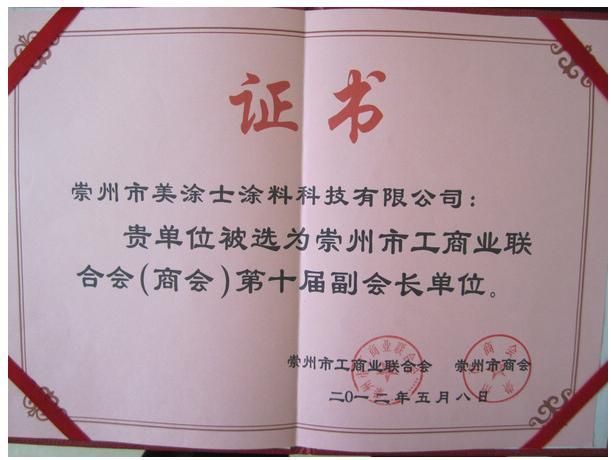 证书
崇州市美涂士涂料科技有限公司：
贵单位被选为崇州市工商业联
合会(商会)第十届副会长单位。
崇州市工商业联合会 崇州市商会
二〇一二年五月八日